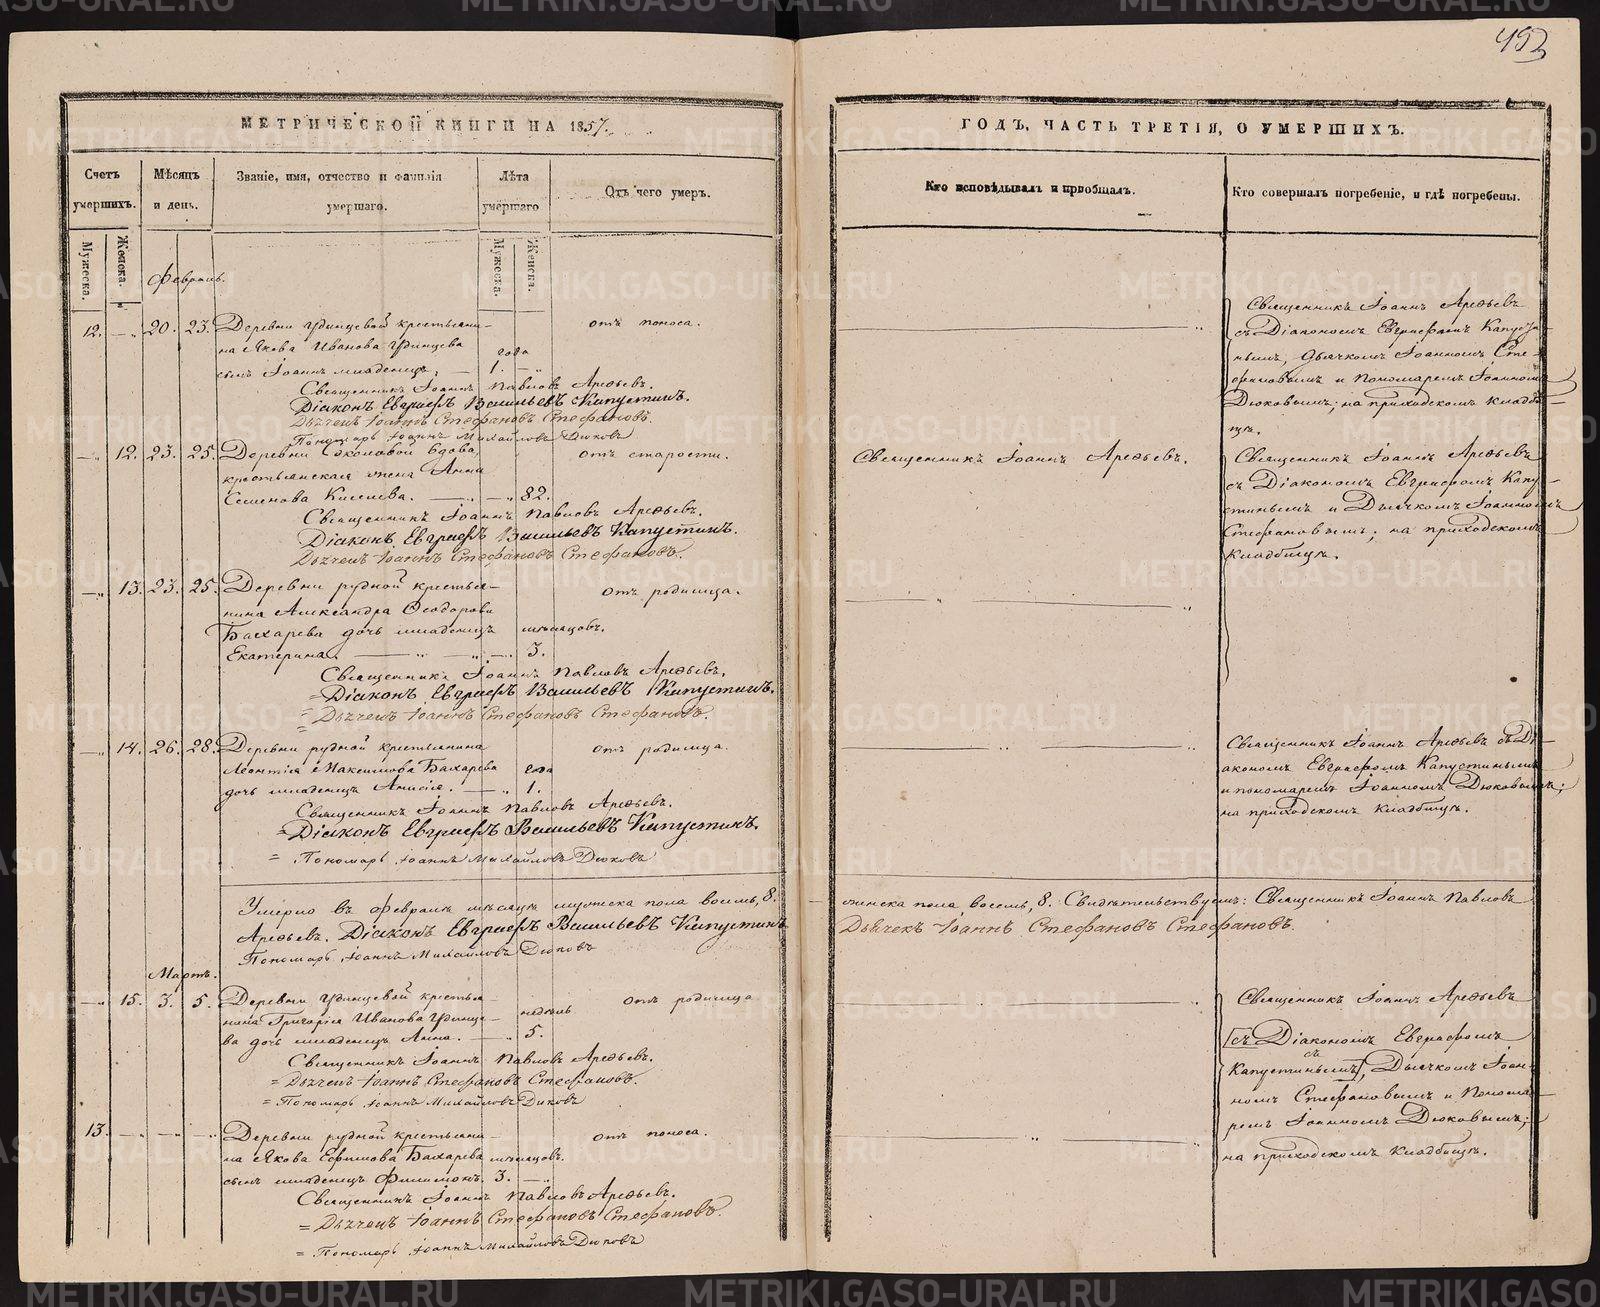 493
МЕТРИЧЕСКОЙ КНИГИ НА 1857.
Счетъ умершихъ.
Мѣсяцъ и день.
Званіе, имя, отчество и фамилія умершаго.
Лѣта умершаго
Отъ чего умеръ.
Мужеска.
Женска.
Мужеска.
Женска.
Февраль.
12. 20. 23. Деревни Удинцевой крестьяни-
на Якова Иванова Удинцева года
сынъ Іоаннъ младенецъ, 1.
отъ поноса.
Священникъ Іоаннъ Павловъ Арефьевъ.
Діаконъ Евграфъ Васильевъ Капустинъ.
Дьячекъ Іоаннъ Стефановъ Стефановъ.
Пономарь Іоаннъ Михайловъ Дюковъ
12. 23. 25. Деревни Соколовой вдова,
крестьянская жена Анна
Семенова Киселева. 82.
отъ старости.
Священникъ Іоаннъ Павловъ Арефьевъ.
Діаконъ Евграфъ Васильевъ Капустинъ.
Дьячекъ Іоаннъ Стефановъ Стефановъ.
13. 23. 25. Деревни рудной крестья-
нина Александра Ѳеодорова
Бахарева дочь младенецъ мѣсяцовъ.
Екатерина. 3.
отъ родимца.
Священникъ Іоаннъ Павловъ Арефьевъ.
=Діаконъ Евграфъ Васильевъ Капустинъ.
= Дьячекъ Іоаннъ Стефановъ Стефановъ.
14. 26. 28. Деревни рудной крестьянина
Леонтія Максимова Бахарева года
дочь младенецъ Анисія. 1.
отъ родимца.
Священникъ Іоаннъ Павловъ Арефьевъ.
=Діаконъ Евграфъ Васильевъ Капустинъ.
= Пономарь Іоаннъ Михайловъ Дюковъ
Умерло въ Февралѣ мѣсяцѣ мужеска пола восемь, 8.
Арефьевъ. Діаконъ Евграфъ Васильевъ Капустинъ
Пономарь Іоаннъ Михайловъ Дюковъ
Мартъ.
15. 3. 5. Деревни Удинцевой крестья-
нина Григорія Иванова Удинце- недѣль
ва дочь младенецъ Анна. 5.
отъ родимца
Священникъ Іоаннъ Павловъ Арефьевъ.
= Дьячекъ Іоаннъ Стефановъ Стефановъ.
= Пономарь Іоаннъ Михайловъ Дюковъ
13. Деревни рудной крестьяни-
на Якова Ефимова Бахарева мѣсяцовъ.
сынъ младенецъ Филимонъ. 3.
отъ поноса.
Священникъ Іоаннъ Павловъ Арефьевъ.
= Дьячекъ Іоаннъ Стефановъ Стефановъ.
= Пономарь Іоаннъ Михайловъ Дюковъ
ГОДЪ, ЧАСТЬ ТРЕТІЯ, О УМЕРШИХЪ.
Кто исповѣдывалъ и пріобщалъ.
Кто совершалъ погребеніе, и гдѣ погребены.
Священникъ Іоаннъ Арефьевъ
съ Діакономъ Евграфомъ Капусти-
нымъ, Дьячкомъ Іоанномъ Сте-
фановымъ и Пономаремъ Іоанномъ
Дюковымъ; на приходскомъ кладби-
щѣ.
Священникъ Іоаннъ Арефьевъ.
Священникъ Іоаннъ Арефьевъ
съ Діакономъ Евграфомъ Капу-
стинымъ и Дьячкомъ Іоанномъ
Стефановымъ; на приходскомъ
кладбищѣ.
Священникъ Іоаннъ Арефьевъ съ Ді-
акономъ Евграфомъ Капустинымъ
и пономаремъ Іоанномъ Дюковымъ;
на приходскомъ кладбищѣ.
женска пола восемь, 8. Свидѣтельствуемъ: Священникъ Іоаннъ Павловъ
Дьячекъ Іоаннъ Стефановъ Стефановъ.
Священникъ Іоаннъ Арефьевъ
[съ Діакономъ Евграфомъ
Капустинымъ], съ Дьячкомъ Іоан-
номъ Стефановымъ и Понома-
ремъ Іоанномъ Дюковымъ;
на приходскомъ кладбищѣ.
METRIKI.GASO-URAL.RU